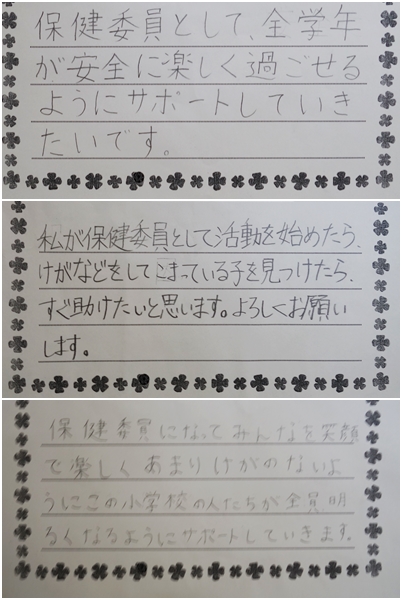 保健委員として、全学年
が安全に楽しく過ごせる
ようにサポートしていき
たいです。
私が保健委員として活動を始めたら、
けがなどをしてこまっている子を見つけたら、
すぐ助けたいと思います。よろしくお願い
します。
保健委員になってみんなを笑顔
で楽しくあまりけがのないよ
うにこの小学校の人たちが全員明
るくなるようにサポートしていきます。